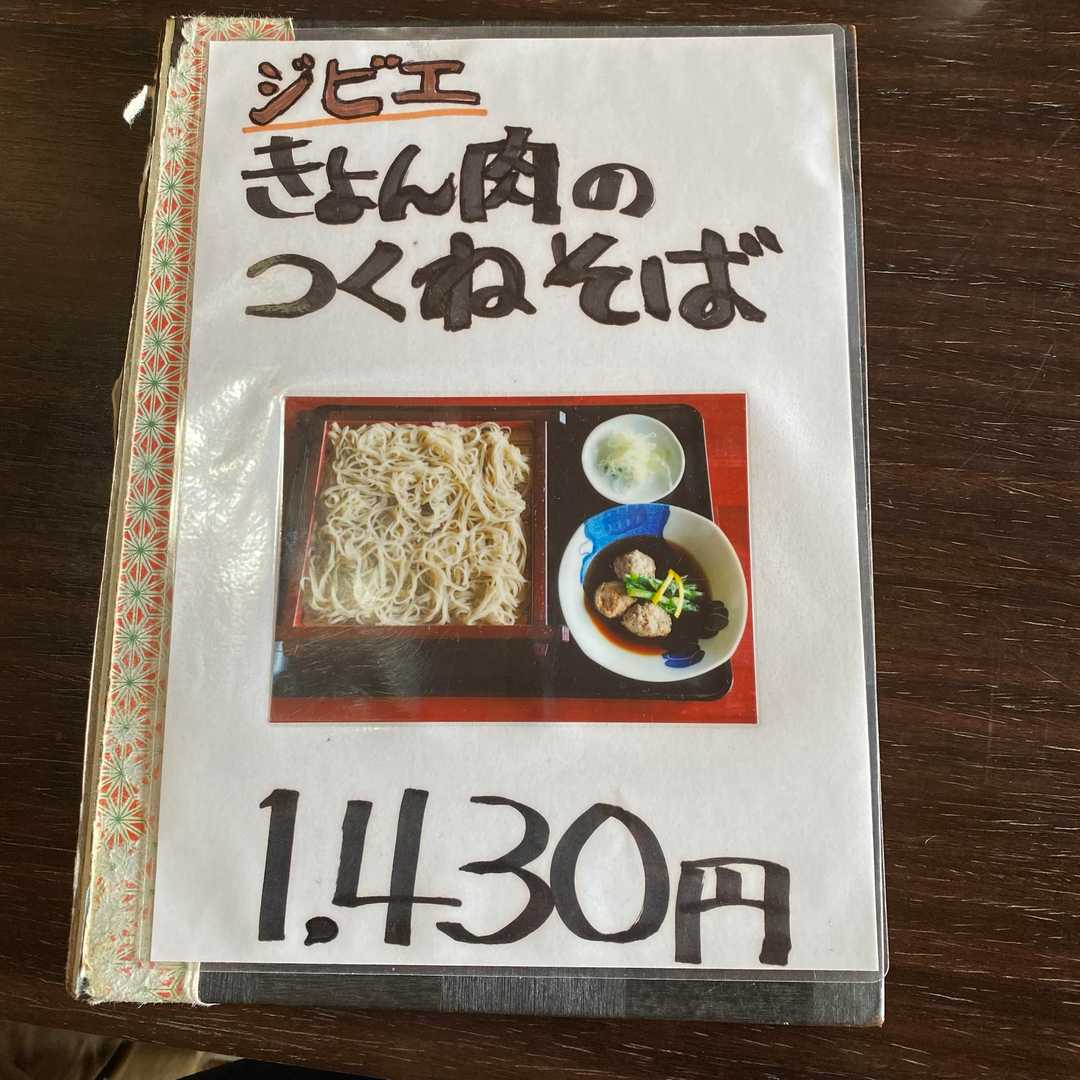 ジビエ
きょん肉の
つくねそば
1,430円